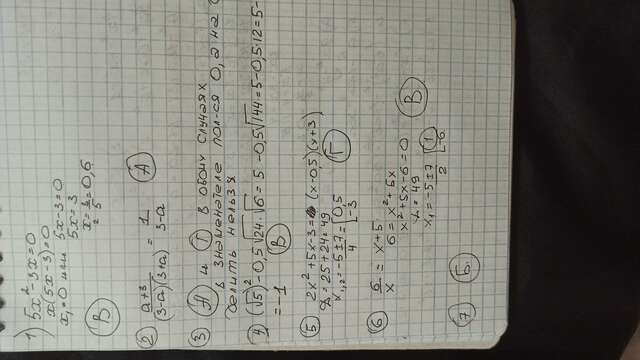 1) 5x²-3x=0
x(5x-3)=0
x₁=0 или 5x-3=0
5x=3
x=3/5=0,6
В
2 a+3/(3-a)(3+a) = 1/3-a А
3 А и Г в обоих случаях
в знаменателе пол-ся 0, а на 0
делить нельзя
4 (√5)²-0,5√24·√6=5-0,5√144=5-0,5·12=5-
=-1 В
5 2x²+5x-3= (x-0,5)(x+3)
D=25+24=49
x₁,₂=-5±7/4=[0,5 -3 Г
6 6/x=x+5
6=x²+5x
x²+5x-6=0
D=49
x₁,=-5±7/2 [1 -6 В
7 Б.